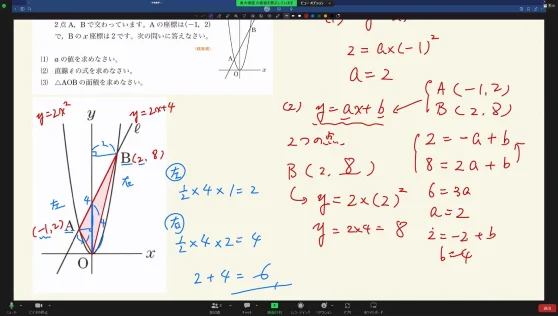 2点A，Bで交わっています。Aの座標は(−1，2)
で，Bのx座標は2です。次の問いに答えなさい。
(1) aの値を求めなさい。
(2) 直線ℓの式を求めなさい。
(3) △AOBの面積を求めなさい。
y
ℓ
B
A
O
x
2 = a×(-1)²
a = 2
(2) y = ax + b
A(-1, 2)
B(2, 8)
2つの点
B(2, 8)
y = 2×(2)²
y = 2×4 = 8
2 = -a + b
8 = 2a + b
6 = 3a
a = 2
2 = -2 + b
b = 4
y = 2x²
y = 2x+4
y
ℓ
2
B(2, 8)
左
右
4
4
(-1, 2)
A
O
x
左
1/2 × 4 × 1 = 2
右
1/2 × 4 × 2 = 4
2 + 4 = 6